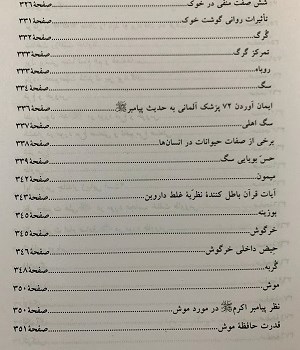 شش صفت منفی در خوک............صفحهٔ ۳۲۶
تأثیرات روانی گوشت خوک............صفحهٔ ۳۳۱
گُرگ............صفحهٔ ۳۳۲
تمرکز گرگ............صفحهٔ ۳۳۳
روباه............صفحهٔ ۳۳۳
سگ............صفحهٔ ۳۳۴
ایمان آوردن ۷۲ پزشک آلمانی به حدیث پیامبر ﷺ............صفحهٔ ۳۳۶
سگ اهلی............صفحهٔ ۳۳۷
برخی از صفات حیوانات در انسان‌ها............صفحهٔ ۳۳۸
حسّ بویایی سگ............صفحهٔ ۳۳۹
میمون............صفحهٔ ۳۴۲
آیات قرآن باطل کنندهٔ نظریّهٔ غلط داروین............صفحهٔ ۳۴۳
بوزینه............صفحهٔ ۳۴۵
خرگوش............صفحهٔ ۳۴۵
حیض داخلی خرگوش............صفحهٔ ۳۴۶
گُربه............صفحهٔ ۳۴۸
موش............صفحهٔ ۳۵۰
نظر پیامبر اکرم ﷺ در مورد موش............صفحهٔ ۳۵۰
قدرت حافظهٔ موش............صفحهٔ ۳۵۱